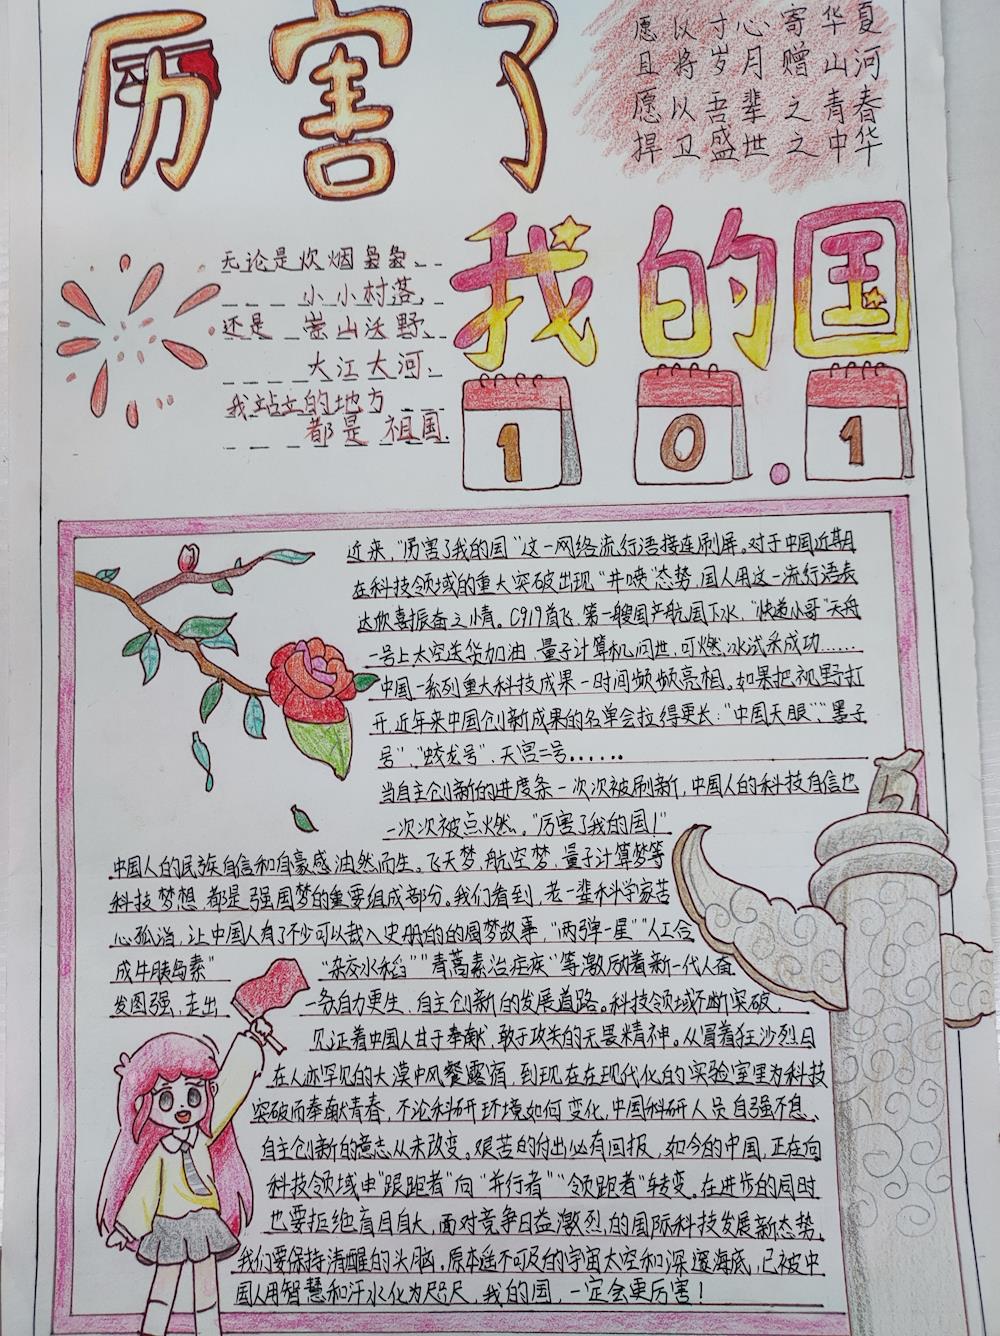 厉害了
愿以寸心寄华夏
且将岁月赠山河
愿以吾辈之青春
捍卫盛世之中华
我的国
无论是炊烟袅袅、
小小村落,
还是 崇山沃野、
大江大河、
我站立的地方
都是 祖国.
10.1
近来,“厉害了我的国”这一网络流行语接连刷屏。对于中国近期
在科技领域的重大突破出现“井喷”态势,国人用这一流行语表
达欣喜振奋之情。C919首飞,第一艘国产航国下水,“快递小哥”天舟
一号上太空送货加油,量子计算机问世,可燃冰试采成功……
中国一系列重大科技成果一时间频频亮相。如果把视野打
开,近年来中国创新成果的名单会拉得更长:“中国天眼”、“墨子
号”、“蛟龙号”、天宫二号……
当自主创新的进度条一次次被刷新,中国人的科技自信也
一次次被点燃。“厉害了我的国!”
中国人的民族自信和自豪感油然而生。飞天梦,航空梦,量子计算梦等
科技梦想,都是强国梦的重要组成部分。我们看到,老一辈科学家苦
心孤诣,让中国人有了不少可以载入史册的的圆梦故事,“两弹一星”“人工合
成牛胰岛素”“杂交水稻”“青蒿素治疟疾”等激励着新一代人奋
发图强,走出一条自力更生、自主创新的发展道路。科技领域不断突破,
见证着中国人甘于奉献、敢于攻关的无畏精神。从冒着狂沙烈日
在人迹罕见的大漠中风餐露宿,到现在在现代化的实验室里为科技
突破而奉献青春,不论科研环境如何变化,中国科研人员自强不息、
自主创新的意志从未改变。艰苦的付出必有回报,如今的中国,正在向
科技领域由“跟跑者”向“并行者”“领跑者”转变。在进步的同时
也要拒绝盲目自大,面对竞争日益激烈的国际科技发展新态势,
我们要保持清醒的头脑。原本遥不可及的宇宙太空和深邃海底,已被中
国人用智慧和汗水化为咫尺,我的国,一定会更厉害!